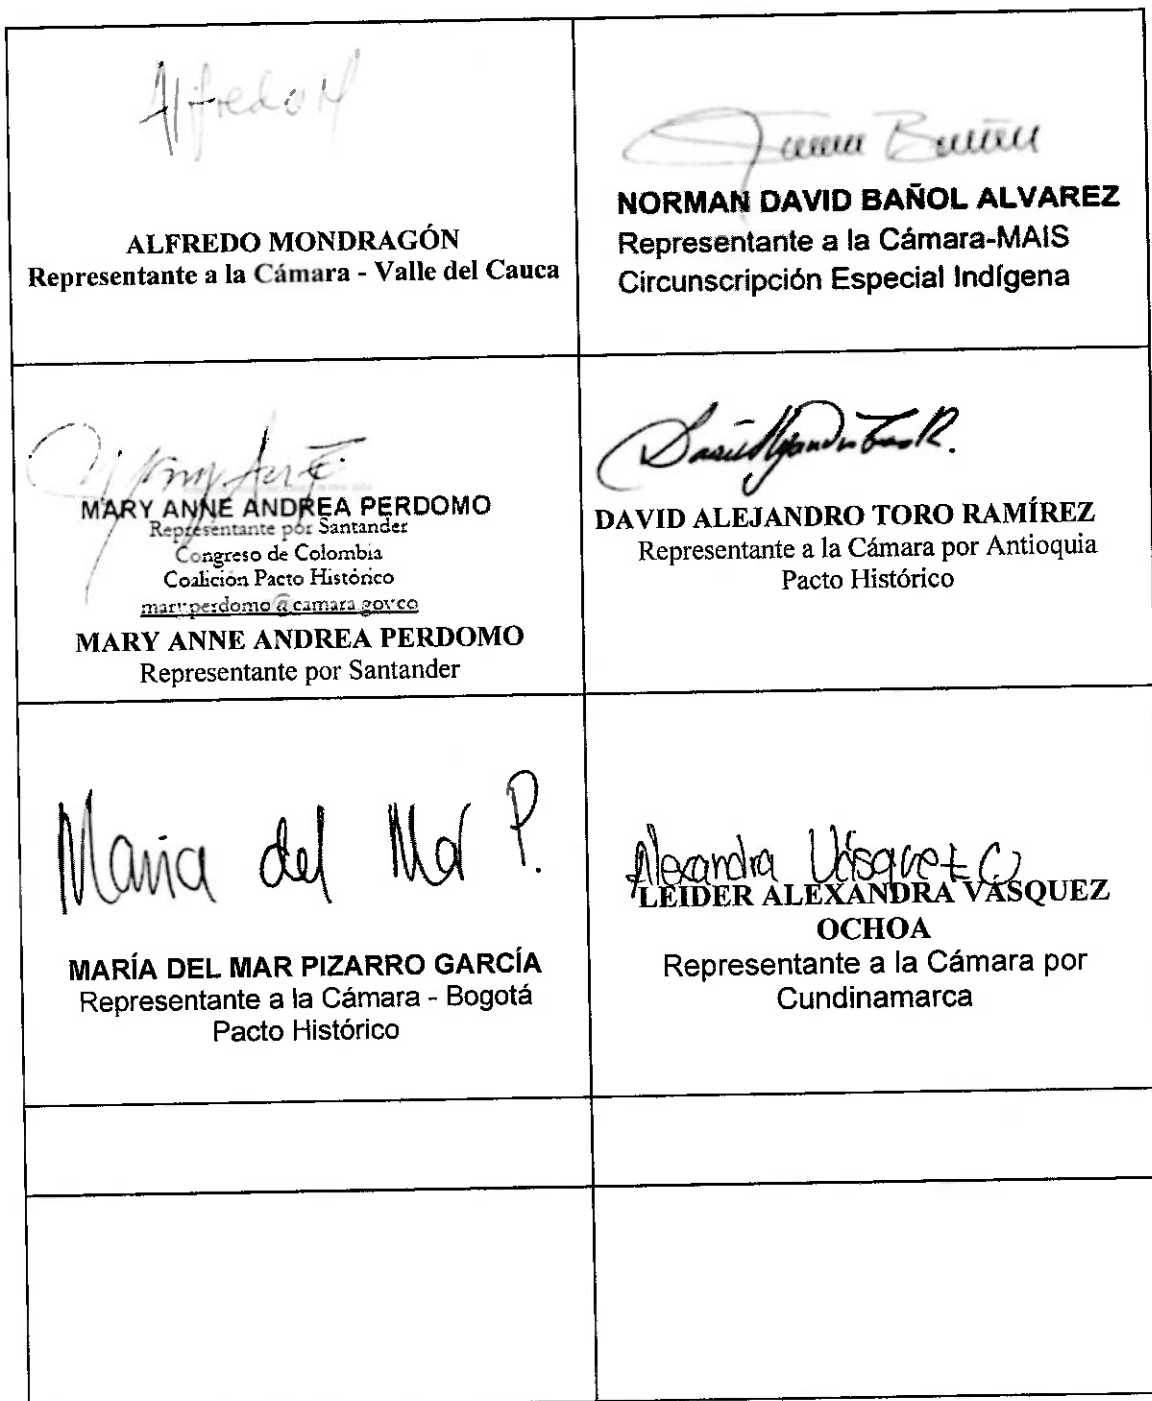 Alfredo M
ALFREDO MONDRAGÓN
Representante a la Cámara - Valle del Cauca
NORMAN DAVID BAÑOL ALVAREZ
Representante a la Cámara-MAIS
Circunscripción Especial Indígena
MARY ANNE ANDREA PERDOMO
Representante por Santander
Congreso de Colombia
Coalición Pacto Histórico
mary.perdomo@camara.gov.co
MARY ANNE ANDREA PERDOMO
Representante por Santander
David Alejandro Toro R.
DAVID ALEJANDRO TORO RAMÍREZ
Representante a la Cámara por Antioquia
Pacto Histórico
Maria del Mar P.
MARÍA DEL MAR PIZARRO GARCÍA
Representante a la Cámara - Bogotá
Pacto Histórico
Alexandra Vásquez O
LEIDER ALEXANDRA VÁSQUEZ
OCHOA
Representante a la Cámara por
Cundinamarca